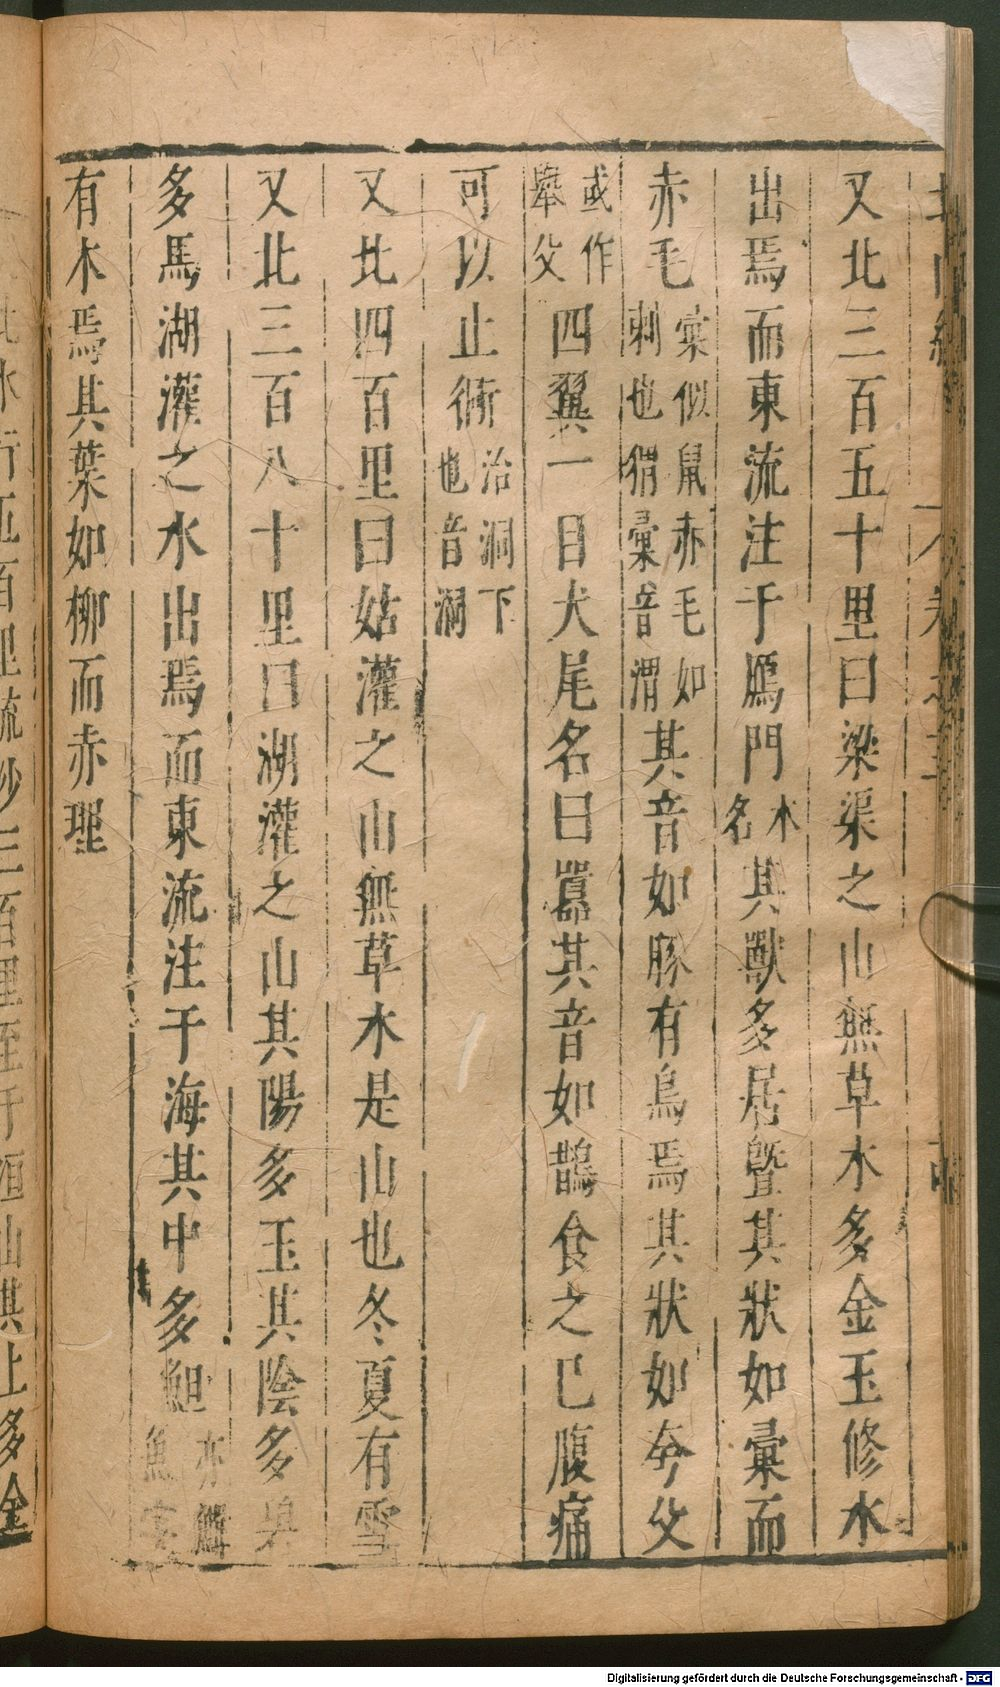 又北三百五十里曰梁渠之山無草木多金玉修水
出焉而東流注于鴈門水名其獸多居暨其狀如彙而
赤毛彙似鼠赤毛如刺也猬彙音渭其音如豚有鳥焉其狀如夸父
或作舉父四翼一目犬尾名曰囂其音如鵲食之已腹痛
可以止衕治洞下也音洞
又北四百里曰姑灌之山無草木是山也冬夏有雪
又北三百八十里曰湖灌之山其陽多玉其陰多碧
多馬湖灌之水出焉而東流注于海其中多䱇亦鱓魚字
有木焉其葉如柳而赤理
Digitalisierung gefördert durch die Deutsche Forschungsgemeinschaft - DFG